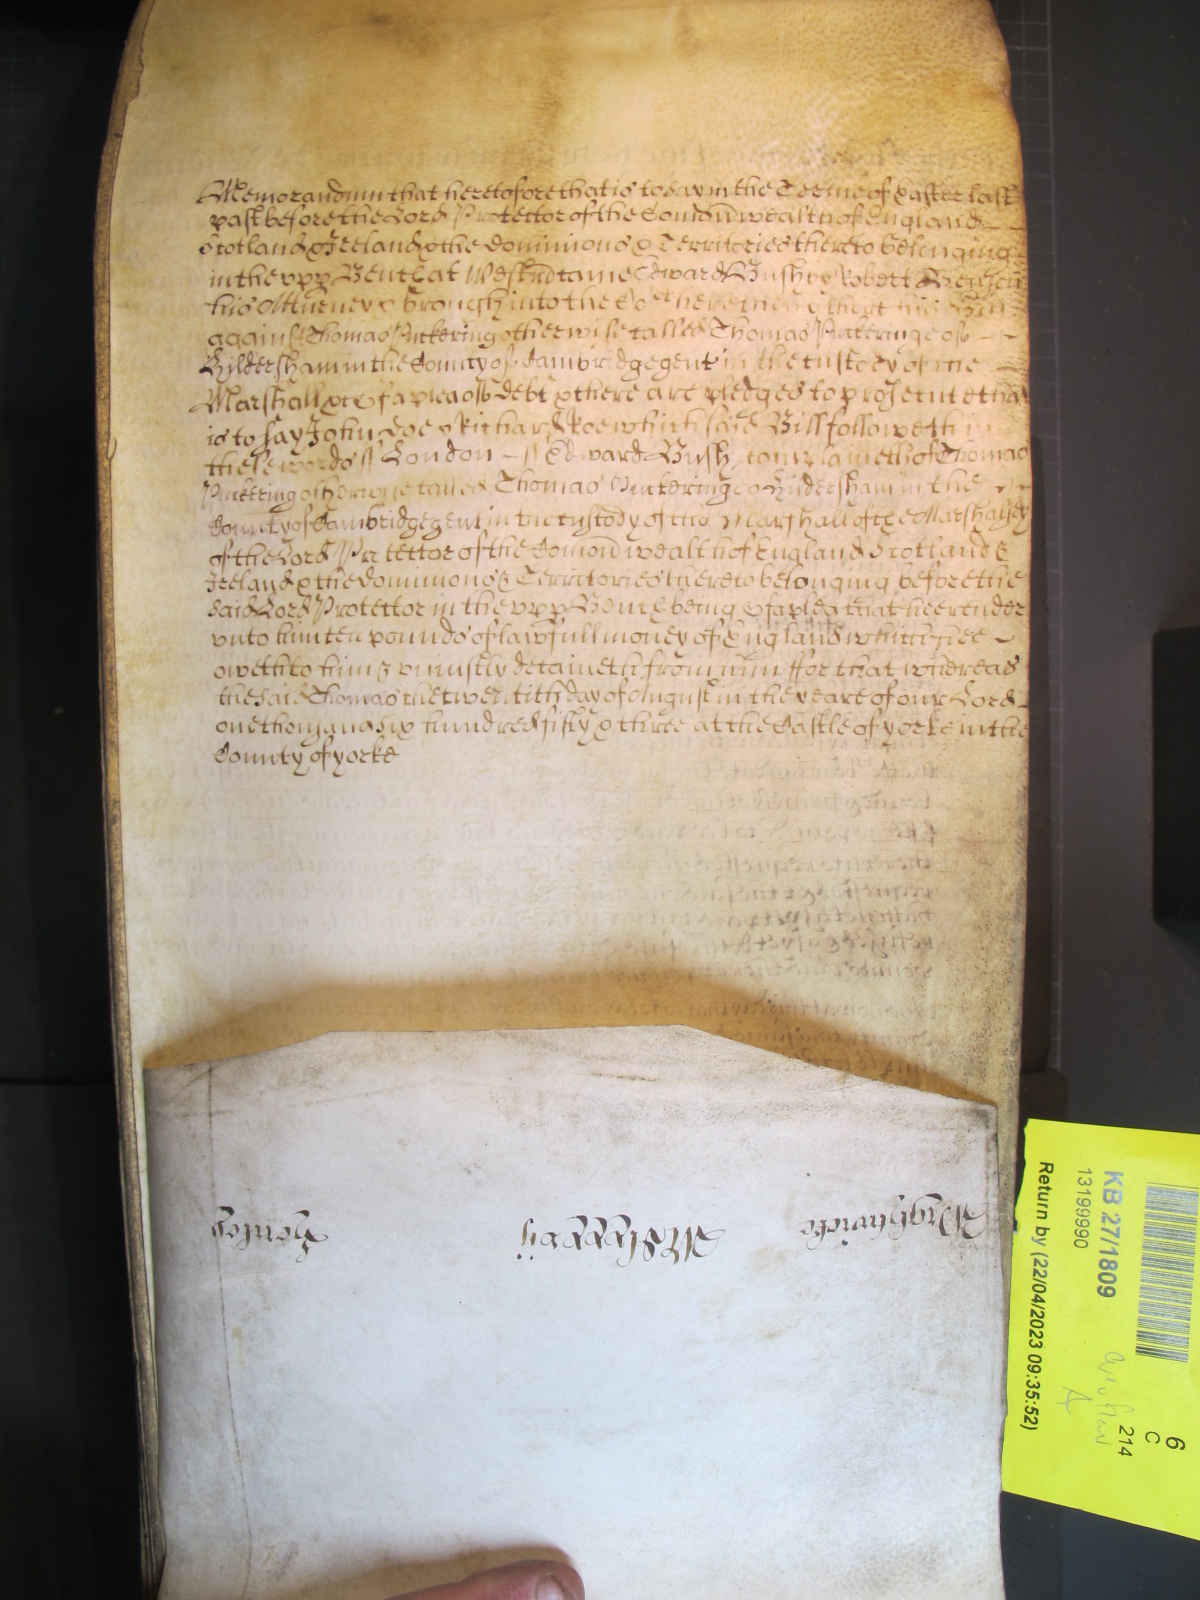 Memorandum that heretofore that is to say in the Terme of Easter last
past before the Lord Protector of the Comon wealth of England
Scotland & Ireland & the dominions & Territories thereto belonging
in the vpp Bench at Westm came Edward Bush by Robert
his Atturney & brought into the Cort here then & there his Bill
against Thomas Puckering otherwise called Thomas Puckeringe of
Hildersham in the County of Cambridge gent in the custody of the
Marshall &c of a plea of debt & there are pledges to prosecute that
is to say John Doe & Richard Roe which said Bill followeth in
these words ss London ss Edward Bush complaineth of Thomas
Puckering otherwise called Thomas Puckeringe of Hildersham in the
County of Cambridge gent in the custody of the Marshall of the Marshalsey
of the Lord Protector of the Comon wealth of England Scotland &
Ireland & the dominions & Territories thereto belonging before the
said Lord Protector in the vpp Bench being of a plea that hee render
vnto him ten pounds of lawfull money of England which hee
oweth to him & vniustly detaineth from him ffor that whereas
the said Thomas the twentith day of August in the yeare of our Lord
one thousand six hundred fifty & three at the Castle of yorke in the
County of yorke
Wightwicke Mlxxxvij Henley
KB 27/1809
13199990
Return by (22/04/2023 09:35:52)
6
C
214
A